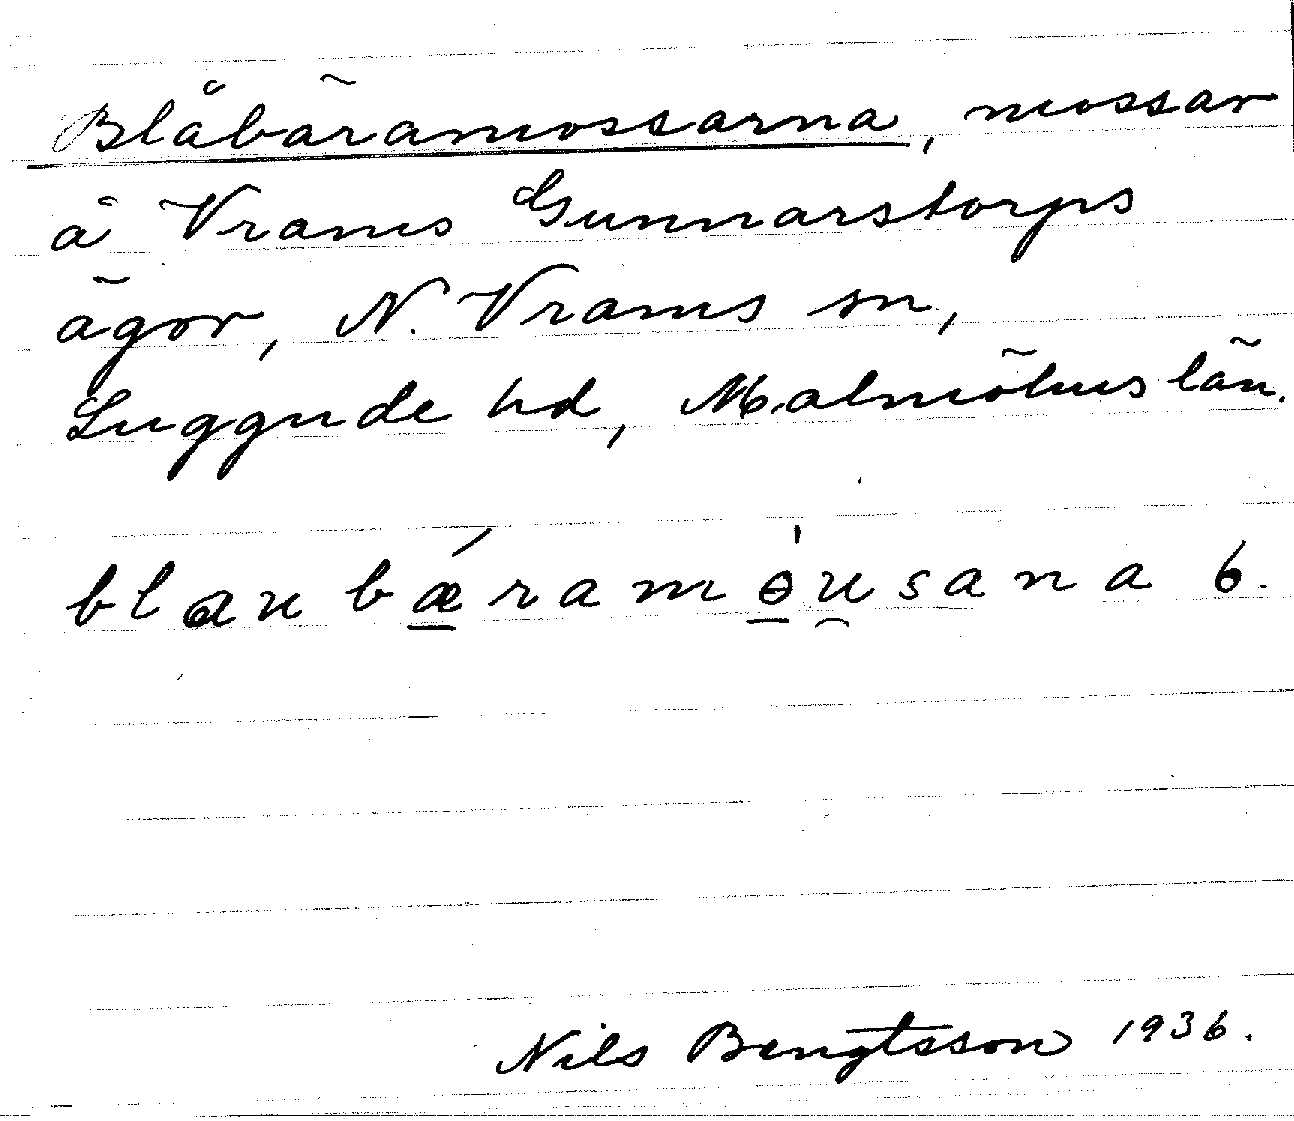 Blåbäramossarna, mossar
å Vrams Gunnarstorps
ägor, N. Vrams sn,
Luggude hd, Malmöhus län.
blaubǽ̠ramɵ̠́u̯sana 6.
Nils Bengtsson 1936.